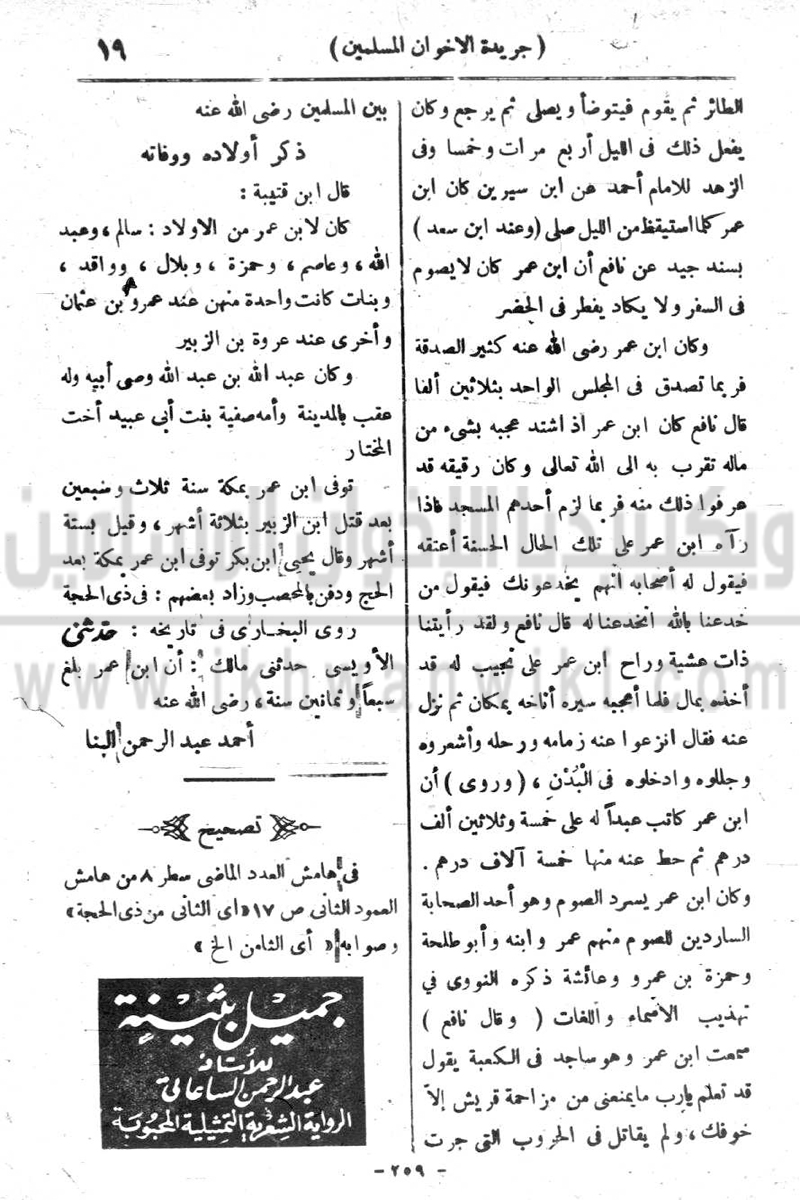 ١٩
( جريدة الاخوان المسلمين )
الطائر ثم يقوم فيتوضأ ويصلى ثم يرجع وكان
يفعل ذلك فى الليل أربع مرات وخمسا وفى
الزهد للامام أحمد عن ابن سيرين كان ابن
عمر كلما استيقظ من الليل صلى (وعند ابن سعد )
بسند جيد عن نافع أن ابن عمر كان لا يصوم
فى السفر ولا يكاد يفطر فى الحضر
وكان ابن عمر رضى الله عنه كثير الصدقة
فربما تصدق فى المجلس الواحد بثلاثين ألفا
قال نافع كان ابن عمر اذ اشتد عجبه بشىء من
ماله تقرب به الى الله تعالى وكان رقيقه قد
عرفوا ذلك منه فربما لزم أحدهم المسجد فاذا
رآه ابن عمر على تلك الحال الحسنة أعتقه
فيقول له أصحابه انهم يخدعونك فيقول من
خدعنا بالله انخدعنا له قال نافع ولقد رأيتنا
ذات عشية وراح ابن عمر على نجيب له قد
أخذه بمال فلما أعجبه سيره أناخه بمكان ثم نزل
عنه فقال انزعوا عنه زمامه ورحله وأشعروه
وجللوه وادخلوه فى الْبُدْنِ ، ( وروى ) أن
ابن عمر كاتب عبداً له على خمسة وثلاثين ألف
درهم ثم حط عنه منها خمسة آلاف درهم .
وكان ابن عمر يسرد الصوم وهو أحد الصحابة
الساردين للصوم منهم عمر وابنه وأبو طلحة
وحمزة بن عمرو وعائشة ذكره النووى فى
تهذيب الأسماء واللغات ( وقال نافع )
سمعت ابن عمر وهو ساجد فى الكعبة يقول
قد تعلم يارب مايمنعنى من مزاحمة قريش إلا
خوفك ، ولم يقاتل فى الحروب التى جرت
بين المسلمين رضى الله عنه
ذكر أولاده ووفاته
قال ابن قتيبة :
كان لابن عمر من الاولاد : سالم ، وعبد
الله ، وعاصم ، وحمزة ، وبلال ، وواقد ،
وبنات كانت واحدة منهن عند عمرو بن عثمان
وأخرى عند عروة بن الزبير
وكان عبد الله بن عبد الله وصى أبيه وله
عقب بالمدينة وأمه صفية بنت أبى عبيد أخت
المختار
توفى ابن عمر بمكة سنة ثلاث وسبعين
بعد قتل ابن الزبير بثلاثة أشهر ، وقيل بستة
أشهر وقال يحيى ابن بكر توفى ابن عمر بمكة بعد
الحج ودفن بالمحصب وزاد بعضهم : فى ذى الحجة
روى البخارى فى تاريخه : حدثنى
الأويسى حدثنى مالك : أن ابن عمر بلغ
سبعاً وثمانين سنة ، رضى الله عنه
أحمد عبد الرحمن البنا
تصحيح
فى هامش العدد الماضى سطر ٨ من هامش
العمود الثانى ص ١٧ «اى الثانى من ذى الحجة»
وصوابه « أى الثامن الخ »
جميل بثينة
للأستاذ
عبد الرحمن الساعاتى
الرواية الشعرية التمثيلية المحبوبة
- ٢٥٩ -
ويكيبيديا الإخوان المسلمين
www.ikhwanwiki.com